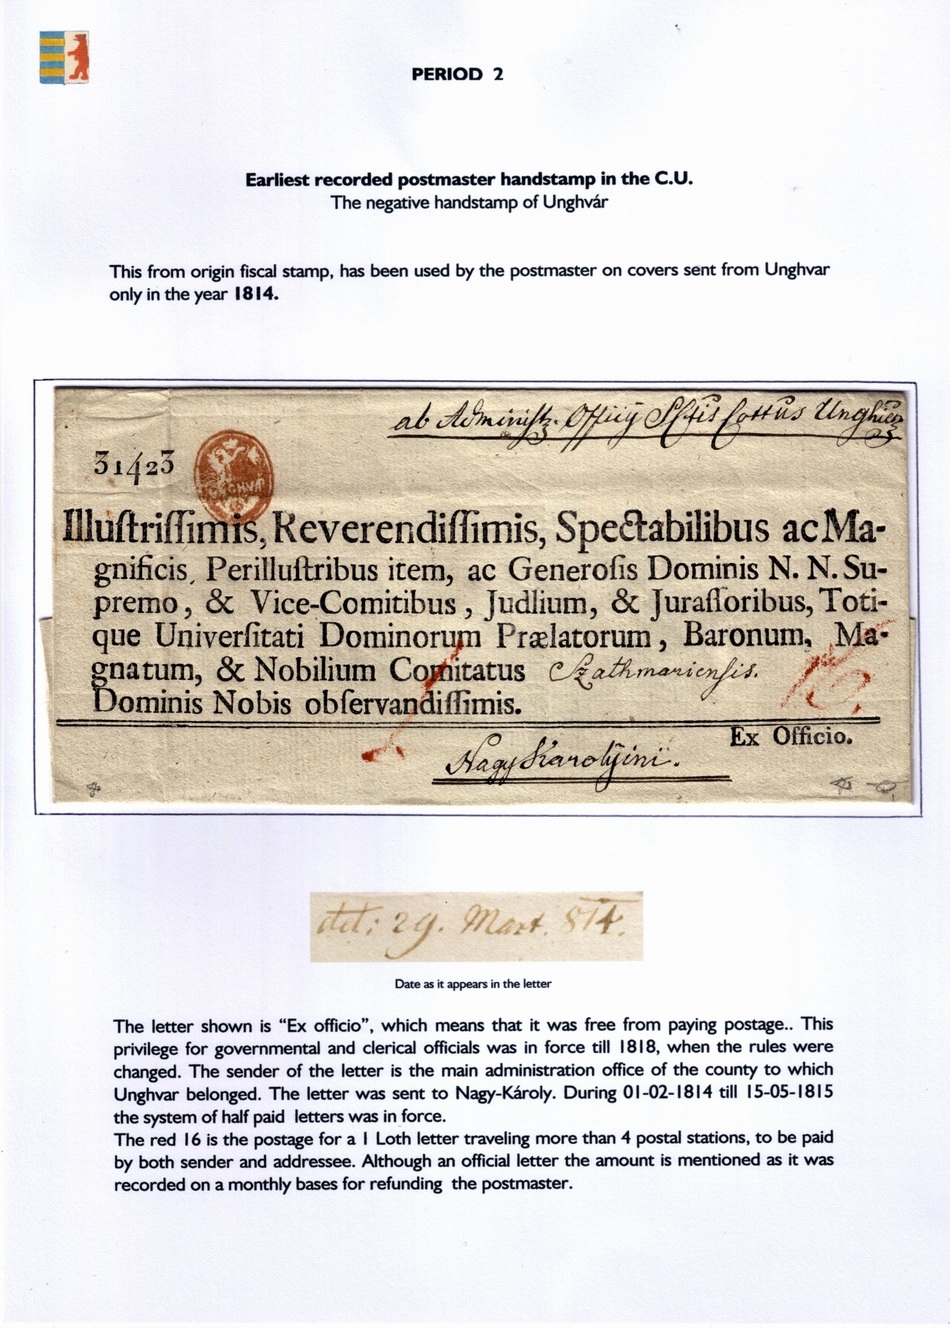 PERIOD 2
Earliest recorded postmaster handstamp in the C.U.
The negative handstamp of Unghvár
This from origin fiscal stamp, has been used by the postmaster on covers sent from Unghvar
only in the year 1814.
ab Administr. Officij
31423
Illuſtriſſimis, Reverendiſſimis, Spectabilibus ac Ma-
gnificis, Perilluſtribus item, ac Generoſis Dominis N. N. Su-
premo, & Vice-Comitibus, Judlium, & Juraſſoribus, Toti-
que Univerſitati Dominorum Prælatorum, Baronum, Ma-
gnatum, & Nobilium Comitatus Szathmariensis.
Dominis Nobis obſervandiſſimis.
16
Ex Officio.
Nagy Karolÿini.
29. Mart. 814.
Date as it appears in the letter
The letter shown is “Ex officio”, which means that it was free from paying postage.. This
privilege for governmental and clerical officials was in force till 1818, when the rules were
changed. The sender of the letter is the main administration office of the county to which
Unghvar belonged. The letter was sent to Nagy-Károly. During 01-02-1814 till 15-05-1815
the system of half paid letters was in force.
The red 16 is the postage for a 1 Loth letter traveling more than 4 postal stations, to be paid
by both sender and addressee. Although an official letter the amount is mentioned as it was
recorded on a monthly bases for refunding the postmaster.